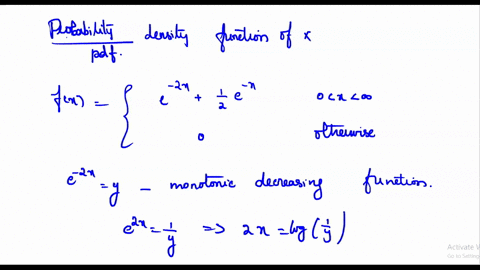 Probability density function of x
pdf.
f(x) = { e^{-2x} + 1/2 e^{-x} 0<x<∞
0 otherwise
e^{-2x} = y – monotonic decreasing function.
e^{2x} = 1/y ⇒ 2x = log(1/y)
Activate W
Go to Setting